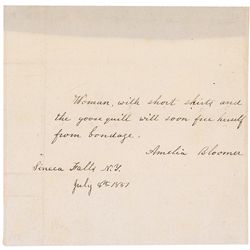 Woman, with short skirts and
the goose quill will soon free herself
from bondage.
Amelia Bloomer
Seneca Falls N.Y.
July 4th 1851